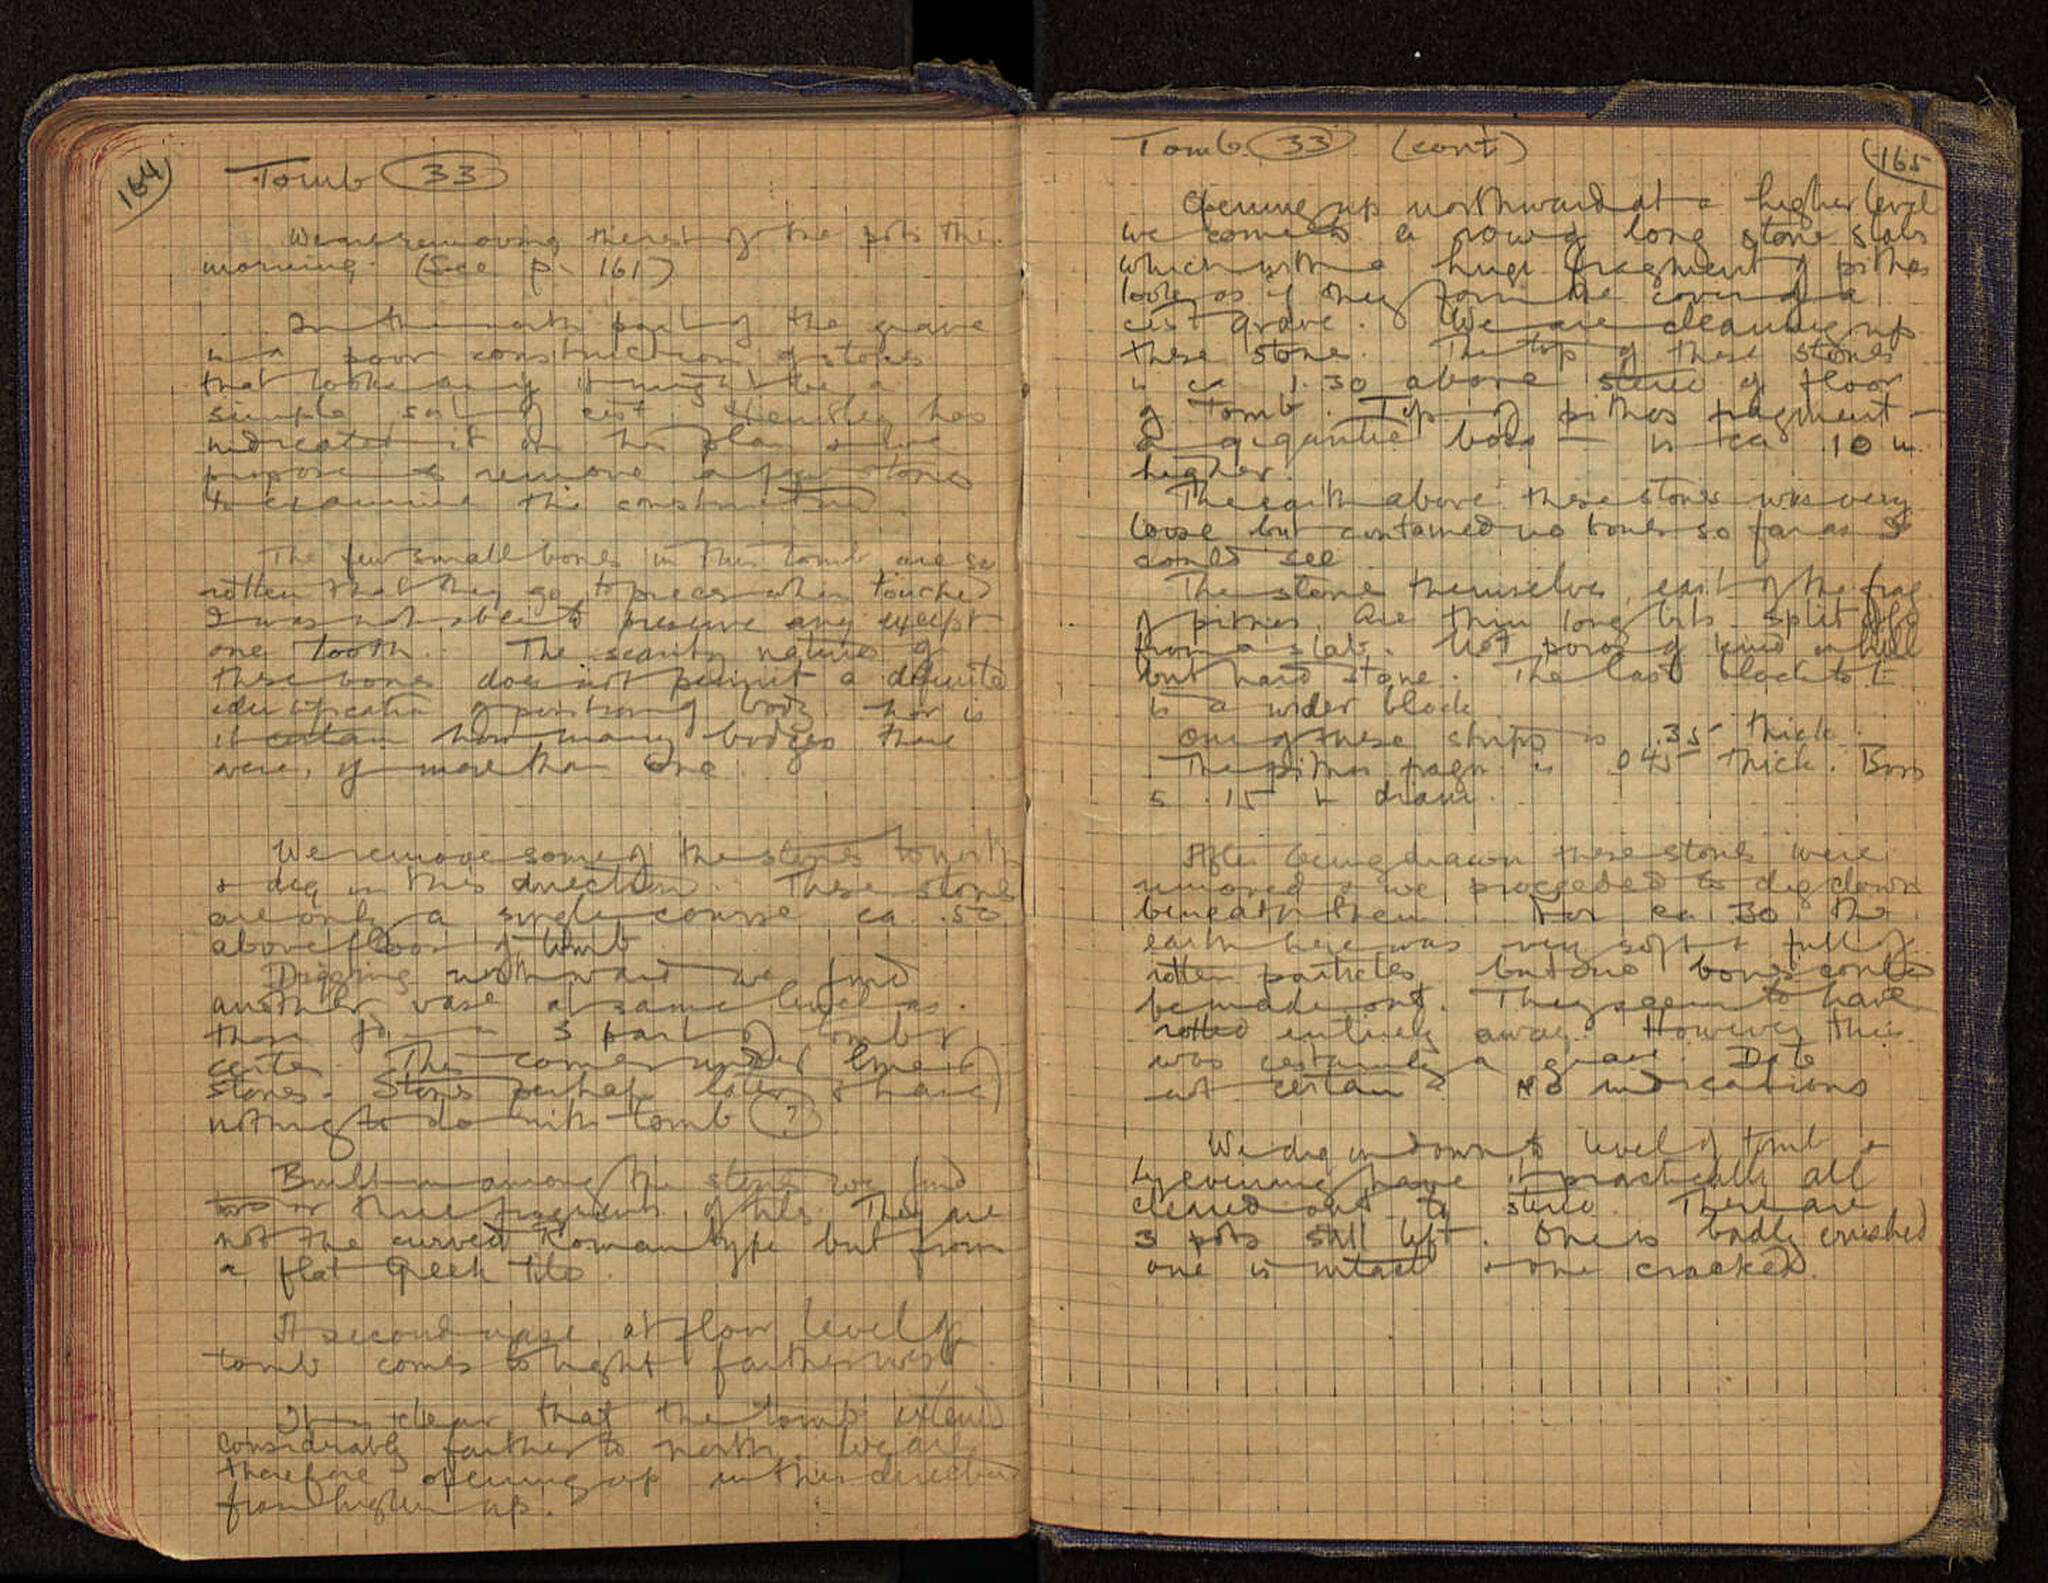 164
Tomb 33
We are removing the rest of the pots this
morning. (See p. 161)
In the north part of the grave
is a poor construction of stones
that looks as if it might be a
simple sort of cist. Hensley has
indicated it on his plan & we
propose to remove a few stones
to examine this construction.
The few small bones in this tomb are so
rotten that they go to pieces when touched
I was not able to preserve any except
one tooth. The scanty nature of
these bones does not permit a definite
identification of position of body nor is
it certain how many bodies there
were, if more than one.
We remove some of the stones to north
& dig in this direction. These stones
are only a single course ca. .50
above floor of tomb
Digging northward we find
another vase at same level as
those in S part of tomb &
center. This comes under line of
stones. Stones perhaps later & have
nothing to do with tomb (?)
Built in among the stones we find
two or three fragments of tile. They are
not the curved Roman type but from
a flat Greek tile.
A second vase at floor level of
tomb comes to light farther west.
It is clear that the tomb extends
considerably farther to north. We are
therefore opening up in this direction
from higher up.
165
Tomb 33 (cont)
Opening up northward at a higher level
we come to a row of long stone slabs
which with a huge fragment of pithos
look as if they form the cover of a
cist grave. We are cleaning up
these stone. The top of these stones
is ca 1.30 above stereo of floor
of Tomb. Top of pithos fragment —
a gigantic boss — is ca .10 m.
higher.
The earth above these stones was very
loose but contained no bones so far as I
could see
The stone themselves, east of the frag.
of pithos, are thin long bits split off
from a slab. Not poros of kind in hill
but hard stone. The last block to E
is a wider block
One of these strips is .35 thick.
The pithos fragm. is .045 thick. Boss
is .15 in diam.
After being drawn these stones were
removed & we proceeded to dig down
beneath them. For ca .30 the
earth here was very soft & full of
rotten particles but no bones could
be made out. They seem to have
rotted entirely away. However this
was certainly a grave. Date
not certain? No indications
We dig on down to level of tomb &
by evening have it practically all
cleared out to stereo. There are
3 pots still left. One is badly crushed
one is intact & one cracked.